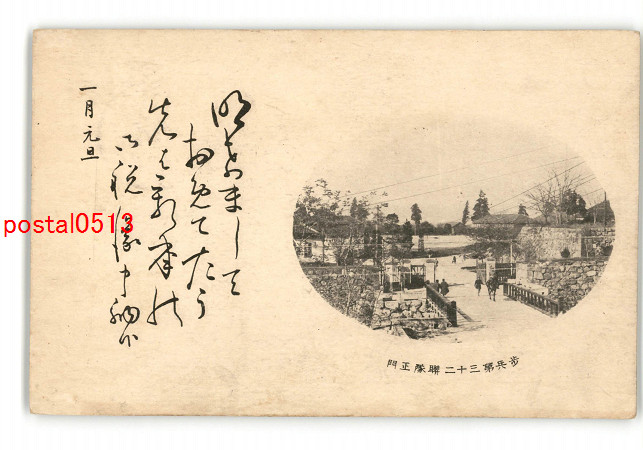 明けまして
お免てたう
先は新年の
御祝儀申納候
一月元旦
歩兵第三十二聯隊正門
postal0513